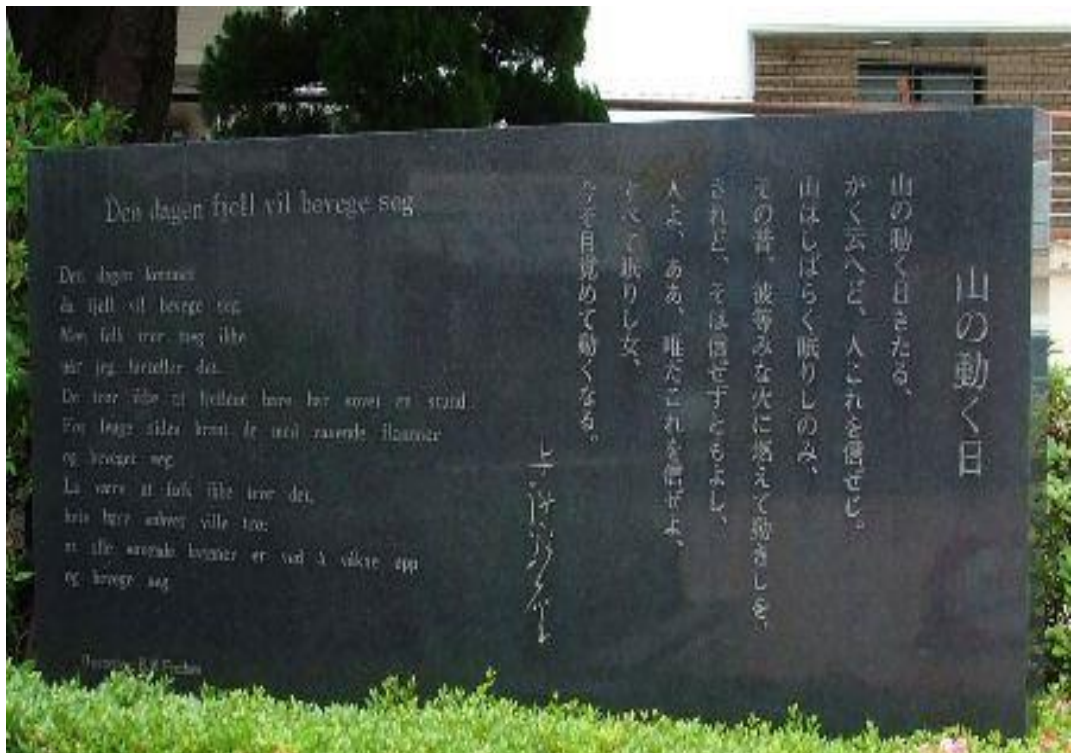 Den dagen fjell vil bevege seg
Den dagen kommer
da fjell vil bevege seg
Men folk tror meg ikke
når jeg forteller det.
De tror ikke at fjellene bare har sovet en stund.
For lenge siden brant de med rasende flammer
og beveget seg.
La være at folk ikke tror det,
hvis bare enhver ville tro:
at alle sovende kvinner er ved å våkne opp
og bevege seg
山の動く日
山の動く日きたる、
かく云へど、人これを信ぜじ。
山はしばらく眠りしのみ、
その昔、彼等みな火に燃えて動きしを。
されど、そは信ぜずともよし、
人よ、ああ、唯だこれを信ぜよ、
すべて眠りし女、
今ぞ目覚めて動くなる。